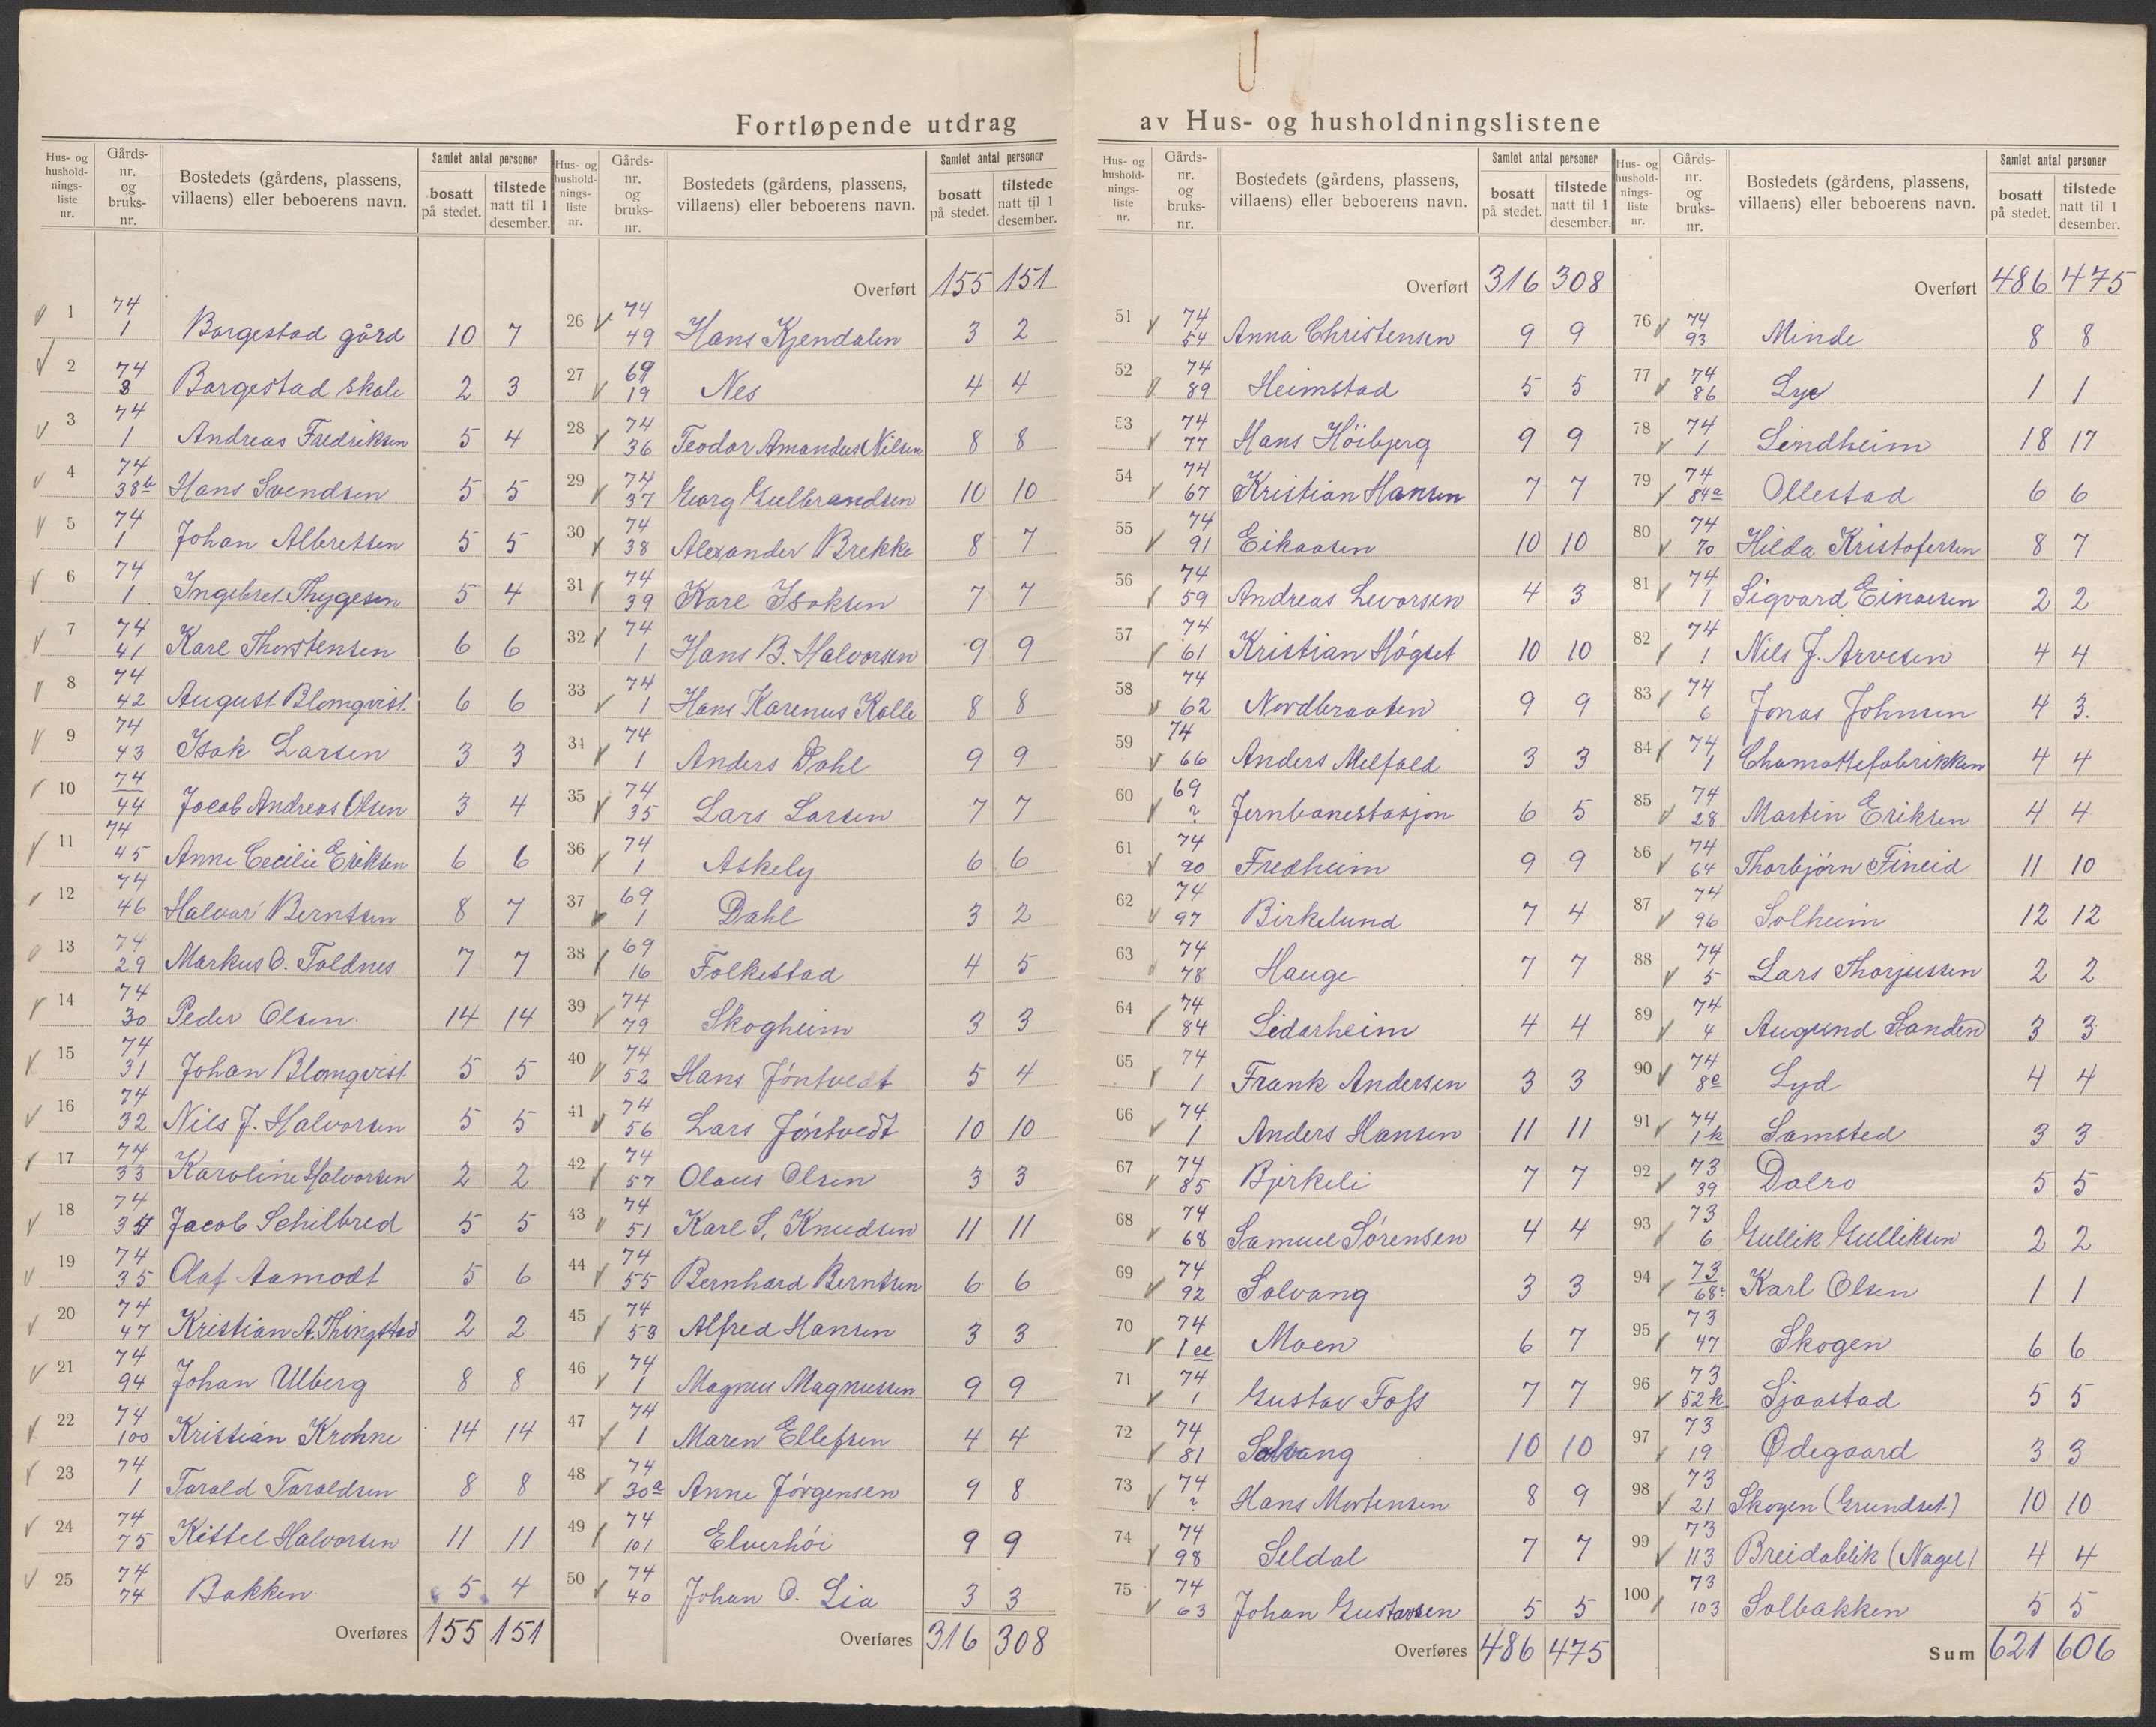 Fortløpende utdrag av Hus- og husholdningslistene
Hus- og hushold-nings-liste nr. | Gårds-nr. og bruks-nr. | Bostedets (gårdens, plassens, villaens) eller beboerens navn. | Samlet antal personer bosatt på stedet. | tilstede natt til 1 desember.
1 74/1 Borgestad gård 10 7
2 74/3 Borgestad skole 2 3
3 74/1 Andreas Fredriksen 5 4
4 74/38b Hans Svendsen 5 5
5 74/1 Johan Albretsen 5 5
6 74/1 Ingebret Thygesen 5 4
7 74/41 Karl Thorstensen 6 6
8 74/42 August Blomqvist 6 6
9 74/43 Isak Larsen 3 3
10 74/44 Jacob Andreas Olsen 3 4
11 74/45 Anne Cecilie Eriksen 6 6
12 74/46 Halvor Berntsen 8 7
13 74/29 Markus O. Toldnes 7 7
14 74/30 Peder Olsen 14 14
15 74/31 Johan Blomqvist 5 5
16 74/32 Nils J. Halvorsen 5 5
17 74/33 Karoline Halvorsen 2 2
18 74/34 Jacob Schilbred 5 5
19 74/35 Olaf Aamodt 5 6
20 74/47 Kristian A. Thingstad 2 2
21 74/94 Johan Ulberg 8 8
22 74/100 Kristian Krohne 14 14
23 74/1 Tarald Taraldsen 8 8
24 74/75 Kittel Halvorsen 11 11
25 74/74 Bakken 5 4
Overføres 155 151
Hus- og hushold-nings-liste nr. | Gårds-nr. og bruks-nr. | Bostedets (gårdens, plassens, villaens) eller beboerens navn. | Samlet antal personer bosatt på stedet. | tilstede natt til 1 desember.
Overført 155 151
26 74/49 Hans Kjendalen 3 2
27 69/19 Nes 4 4
28 74/36 Teodor Amandus Nilsen 8 8
29 74/37 Georg Gulbrandsen 10 10
30 74/38 Alexander Brekke 8 7
31 74/39 Karl Isaksen 7 7
32 74/1 Hans B. Halvorsen 9 9
33 74/1 Hans Karenus Kolle 8 8
34 74/1 Anders Dahl 9 9
35 74/35 Lars Larsen 7 7
36 74/1 Askely 6 6
37 69/1 Dahl 3 2
38 69/16 Folkestad 4 5
39 74/79 Skogheim 3 3
40 74/52 Hans Jøntvedt 5 4
41 74/56 Lars Jøntvedt 10 10
42 74/57 Olaus Olsen 3 3
43 74/51 Karl S. Knudsen 11 11
44 74/55 Bernhard Berntsen 6 6
45 74/53 Alfred Hansen 3 3
46 74/1 Magnus Magnussen 9 9
47 74/1 Maren Ellefsen 4 4
48 74/30a Anne Jørgensen 9 8
49 74/101 Elverhöi 9 9
50 74/40 Johan O. Lia 3 3
Overføres 316 308
Hus- og hushold-nings-liste nr. | Gårds-nr. og bruks-nr. | Bostedets (gårdens, plassens, villaens) eller beboerens navn. | Samlet antal personer bosatt på stedet. | tilstede natt til 1 desember.
Overført 316 308
51 74/54 Anna Christensen 9 9
52 74/89 Heimstad 5 5
53 74/77 Hans Höibjerg 9 9
54 74/67 Kristian Hansen 7 7
55 74/91 Eikaasen 10 10
56 74/59 Andreas Levorsen 4 3
57 74/61 Kristian Høgset 10 10
58 74/62 Nordbraaten 9 9
59 74/66 Anders Melfald 3 3
60 69/? Jernbanestasjon 6 5
61 74/90 Fredheim 9 9
62 74/97 Birkelund 7 4
63 74/78 Hauge 7 7
64 74/84 Lidarheim 4 4
65 74/1 Frank Andersen 3 3
66 74/1 Anders Hansen 11 11
67 74/85 Bjerkeli 7 7
68 74/68 Samuel Sørensen 4 4
69 74/92 Solvang 3 3
70 74/1 Moen 6 7
71 74/1 Gustav Foss 7 7
72 74/81 Solvang 10 10
73 74/? Hans Mortensen 8 9
74 74/98 Seldal 7 7
75 74/63 Johan Gustavsen 5 5
Overføres 486 475
Hus- og hushold-nings-liste nr. | Gårds-nr. og bruks-nr. | Bostedets (gårdens, plassens, villaens) eller beboerens navn. | Samlet antal personer bosatt på stedet. | tilstede natt til 1 desember.
Overført 486 475
76 74/93 Minde 8 8
77 74/86 Lye 1 1
78 74/1 Lindheim 18 17
79 74/84a Ollestad 6 6
80 74/70 Hilda Kristofersen 8 7
81 74/1 Sigvard Einarsen 2 2
82 74/1 Nils J. Arvesen 4 4
83 74/6 Jonas Johnsen 4 3.
84 74/1 Chamottefabrikken 4 4
85 74/28 Martin Eriksen 4 4
86 74/64 Thorbjørn Fineid 11 10
87 74/96 Solheim 12 12
88 74/5 Lars Thorjussen 2 2
89 74/4 Augund Sanden 3 3
90 74/8 Lyd 4 4
91 74/1k Samsted 3 3
92 73/39 Dalro 5 5
93 73/6 Gullik Gulliksen 2 2
94 73/68 Karl Olsen 1 1
95 73/47 Skogen 6 6
96 73/52k Sjaastad 5 5
97 73/19 Ødegaard 3 3
98 73/21 Skogen (Grundset) 10 10
99 73/113 Breidablik (Nagel) 4 4
100 73/103 Solbakken 5 5
Sum 621 606